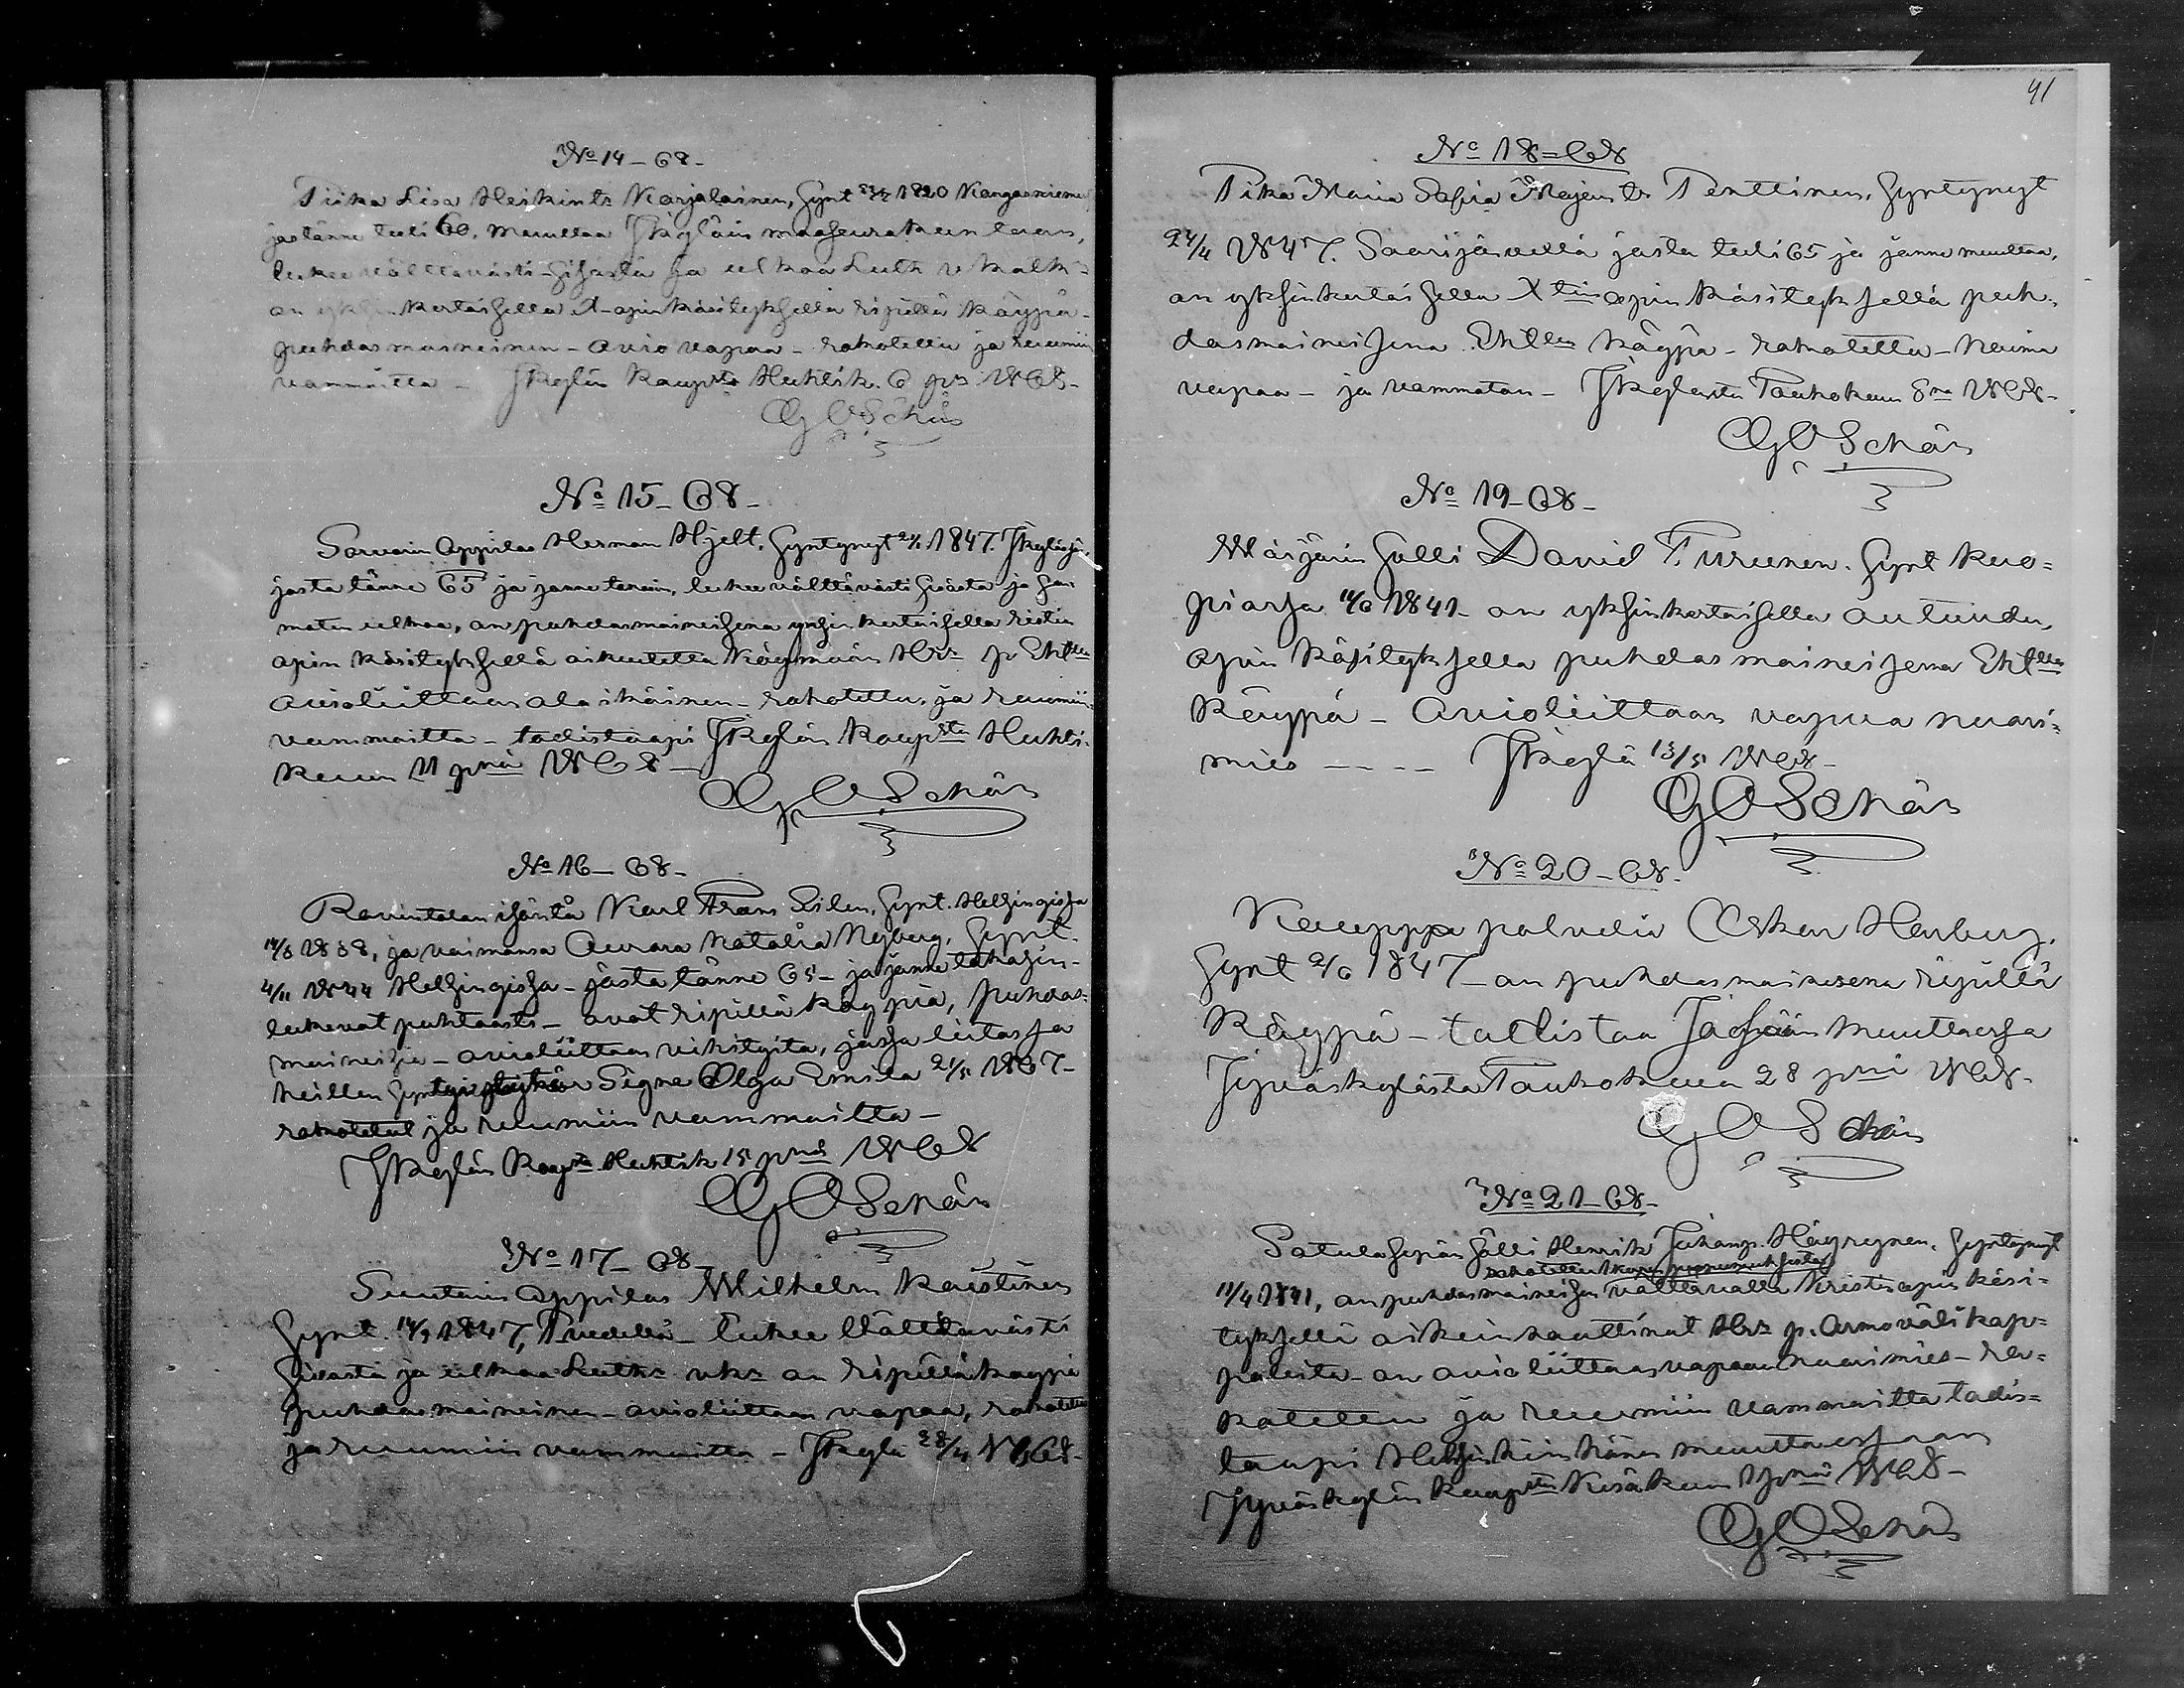 No 14-68-
Piika Lisa Heikints Karjalainen, synt 1820 Kangasniemi
josta tänne tuli 60, muuttaa Jkylän maaseurakuntaan,
lukee välttävästi sisästä ja ulkoa Luth v katk
on yksinkertaisella X-opin käsityksellä ripillä käypä-
puhdasmaineinen - avio vapaa - rokotettu ja ruumiin
vammoitta - Jkylän Kaupsta Huhtik. 6 pv 1868-
G O Schön
No 15-68-
Sorvarin Oppilas Herman Hjelt, syntynyt 1847. Jkylässä,
josta tänne 65 ja jonne taasin, lukee välttävästi sisästä ja sa-
moten ulkoa, on puhdasmaineisena yxsinkertaisella ristin
opin käsityksellä oikeutettu käymään Hrr p Ehtlla
avioliittoon ala ikäinen - rokotettu, ja ruumiin
vammoitta - todistaapi Jkylän Kaupsta Huhti-
kuun 11 pnä 1868-
G O Schön
No 16-68-
Ravintolan isäntä Karl Frans Silen, synt. Helsingissä
14/8 1838, ja vaimonsa Aurora Natalia Nyberg, synt.
4/11 1844 Helsingissä - josta tänne 65 - ja jonne takasin-
lukevat puhtaasti - ovat ripillä käypiä, puhdas-
maineisia - avioliittoon vihityitä, jossa liitossa
heillen syntyi Signe Olga Emilia 21/5 1867-
rokotetut ja ruumiin vammoitta -
Jkylän Kaupsta Huhtik 15 pnä 1868
G O Schön
No 17-68-
Suutarin Oppilas Wilhelm Kaistinen
synt. 14/9 1847, Pued - lukee Välttävästi
sisästä ja ulkoa Luthr vkr on ripillä käypä
puhdasmaineinen - avioliittoon vapaa, rokotettu
ja ruumiin vammoitta - Jkylä 28/4 1868-
41
No 18-68
Pika Maria Sofia Majeints Penttinen, syntynyt
24/4 1847. Saarijärvellä josta tuli 65 ja jonne muuttaa,
on yksinkertaisella Xtin opin käsityksellä puh-
dasmaineisena Ehtlle käypä - rokotettu - Naima
vapaa - ja vammaton - Jkylästä Toukokuun 8na 1868-
G O Schön
No 19-68-
Wärjärin sälli David Turunen. synt Kuo-
piossa 14/6 1841- on yksinkertaisella autuuden
opin käsityksellä puhdasmaineisena Ehtlle
Käypä - Avioliittoon vapaa nuori-
mies - - - - Jkylä 13/5 1868-
G O Schön
No 20-68-
Kauppa palvelia Oskar Herberg.
synt 2/6 1847- on puhdasmaineisena ripillä
Käypä - todistaa Jäfsään muuttaessa
Jyväskylästä Toukokuun 28 pnä 1868-
G O Schön
No 21-68-
Satulasepän sälli Henrik Juhanp. Häyrynen. syntynyt
11/4 1841, on puhdasmaineisen välttävällä Kristin opin käsi-
tyksellä oikein nauttinut Hrr p. Armovälikap-
paleita - on avioliittoon vapaa nuorimies - ro-
kotettu ja ruumiin vammoitta todis-
taapi Helsinkiin hänen muuttaessaan
Jyväskylän kaupsta Kesäkuun 1 pnä 1868-
G O Schön